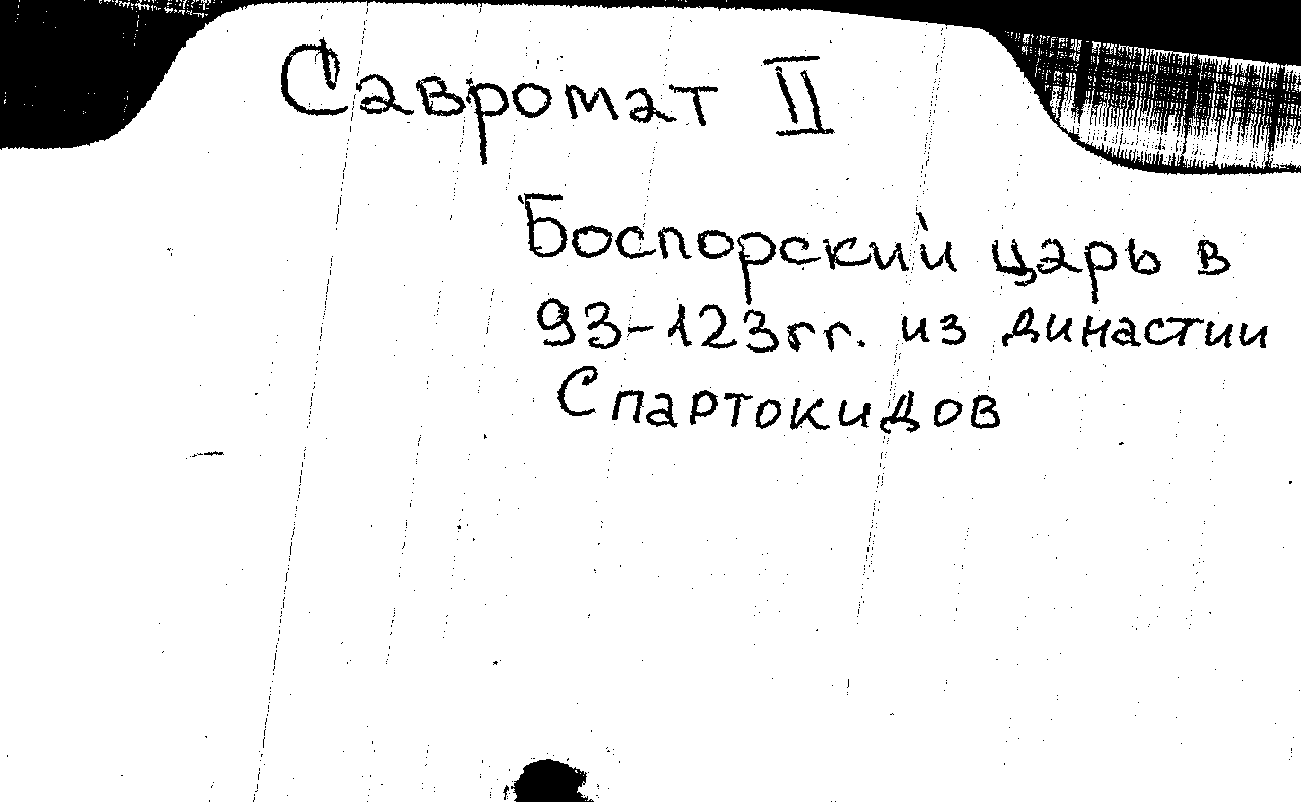 Савромат II
Боспорский царь в
93-123гг. из династии
Спартокидов